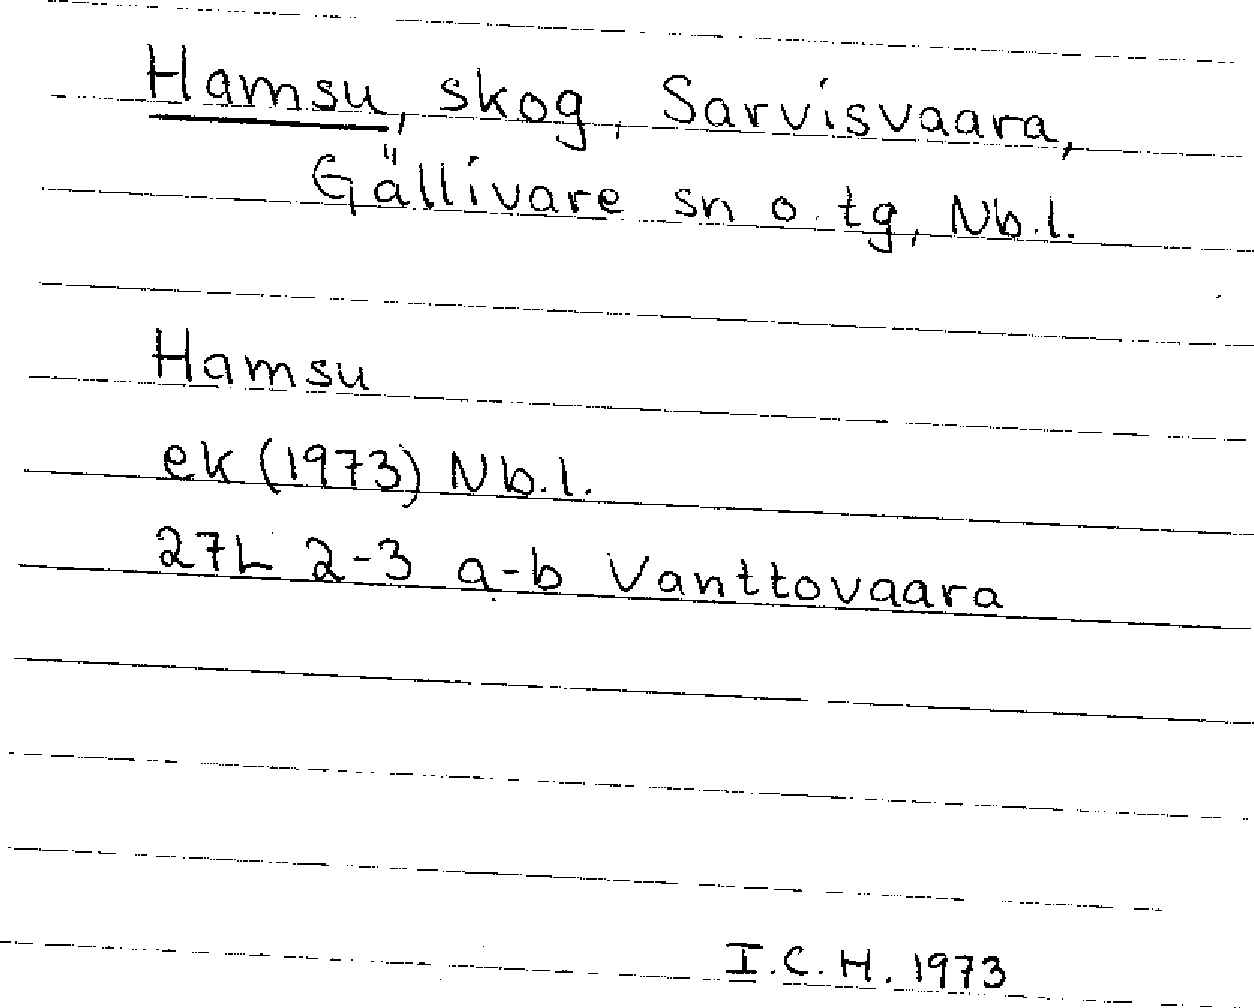 Hamsu, skog, Sarvisvaara,
Gällivare sn o. tg, Nb.l.
Hamsu
ek (1973) Nb.l.
27L 2-3 a-b Vanttovaara
I.C.H. 1973